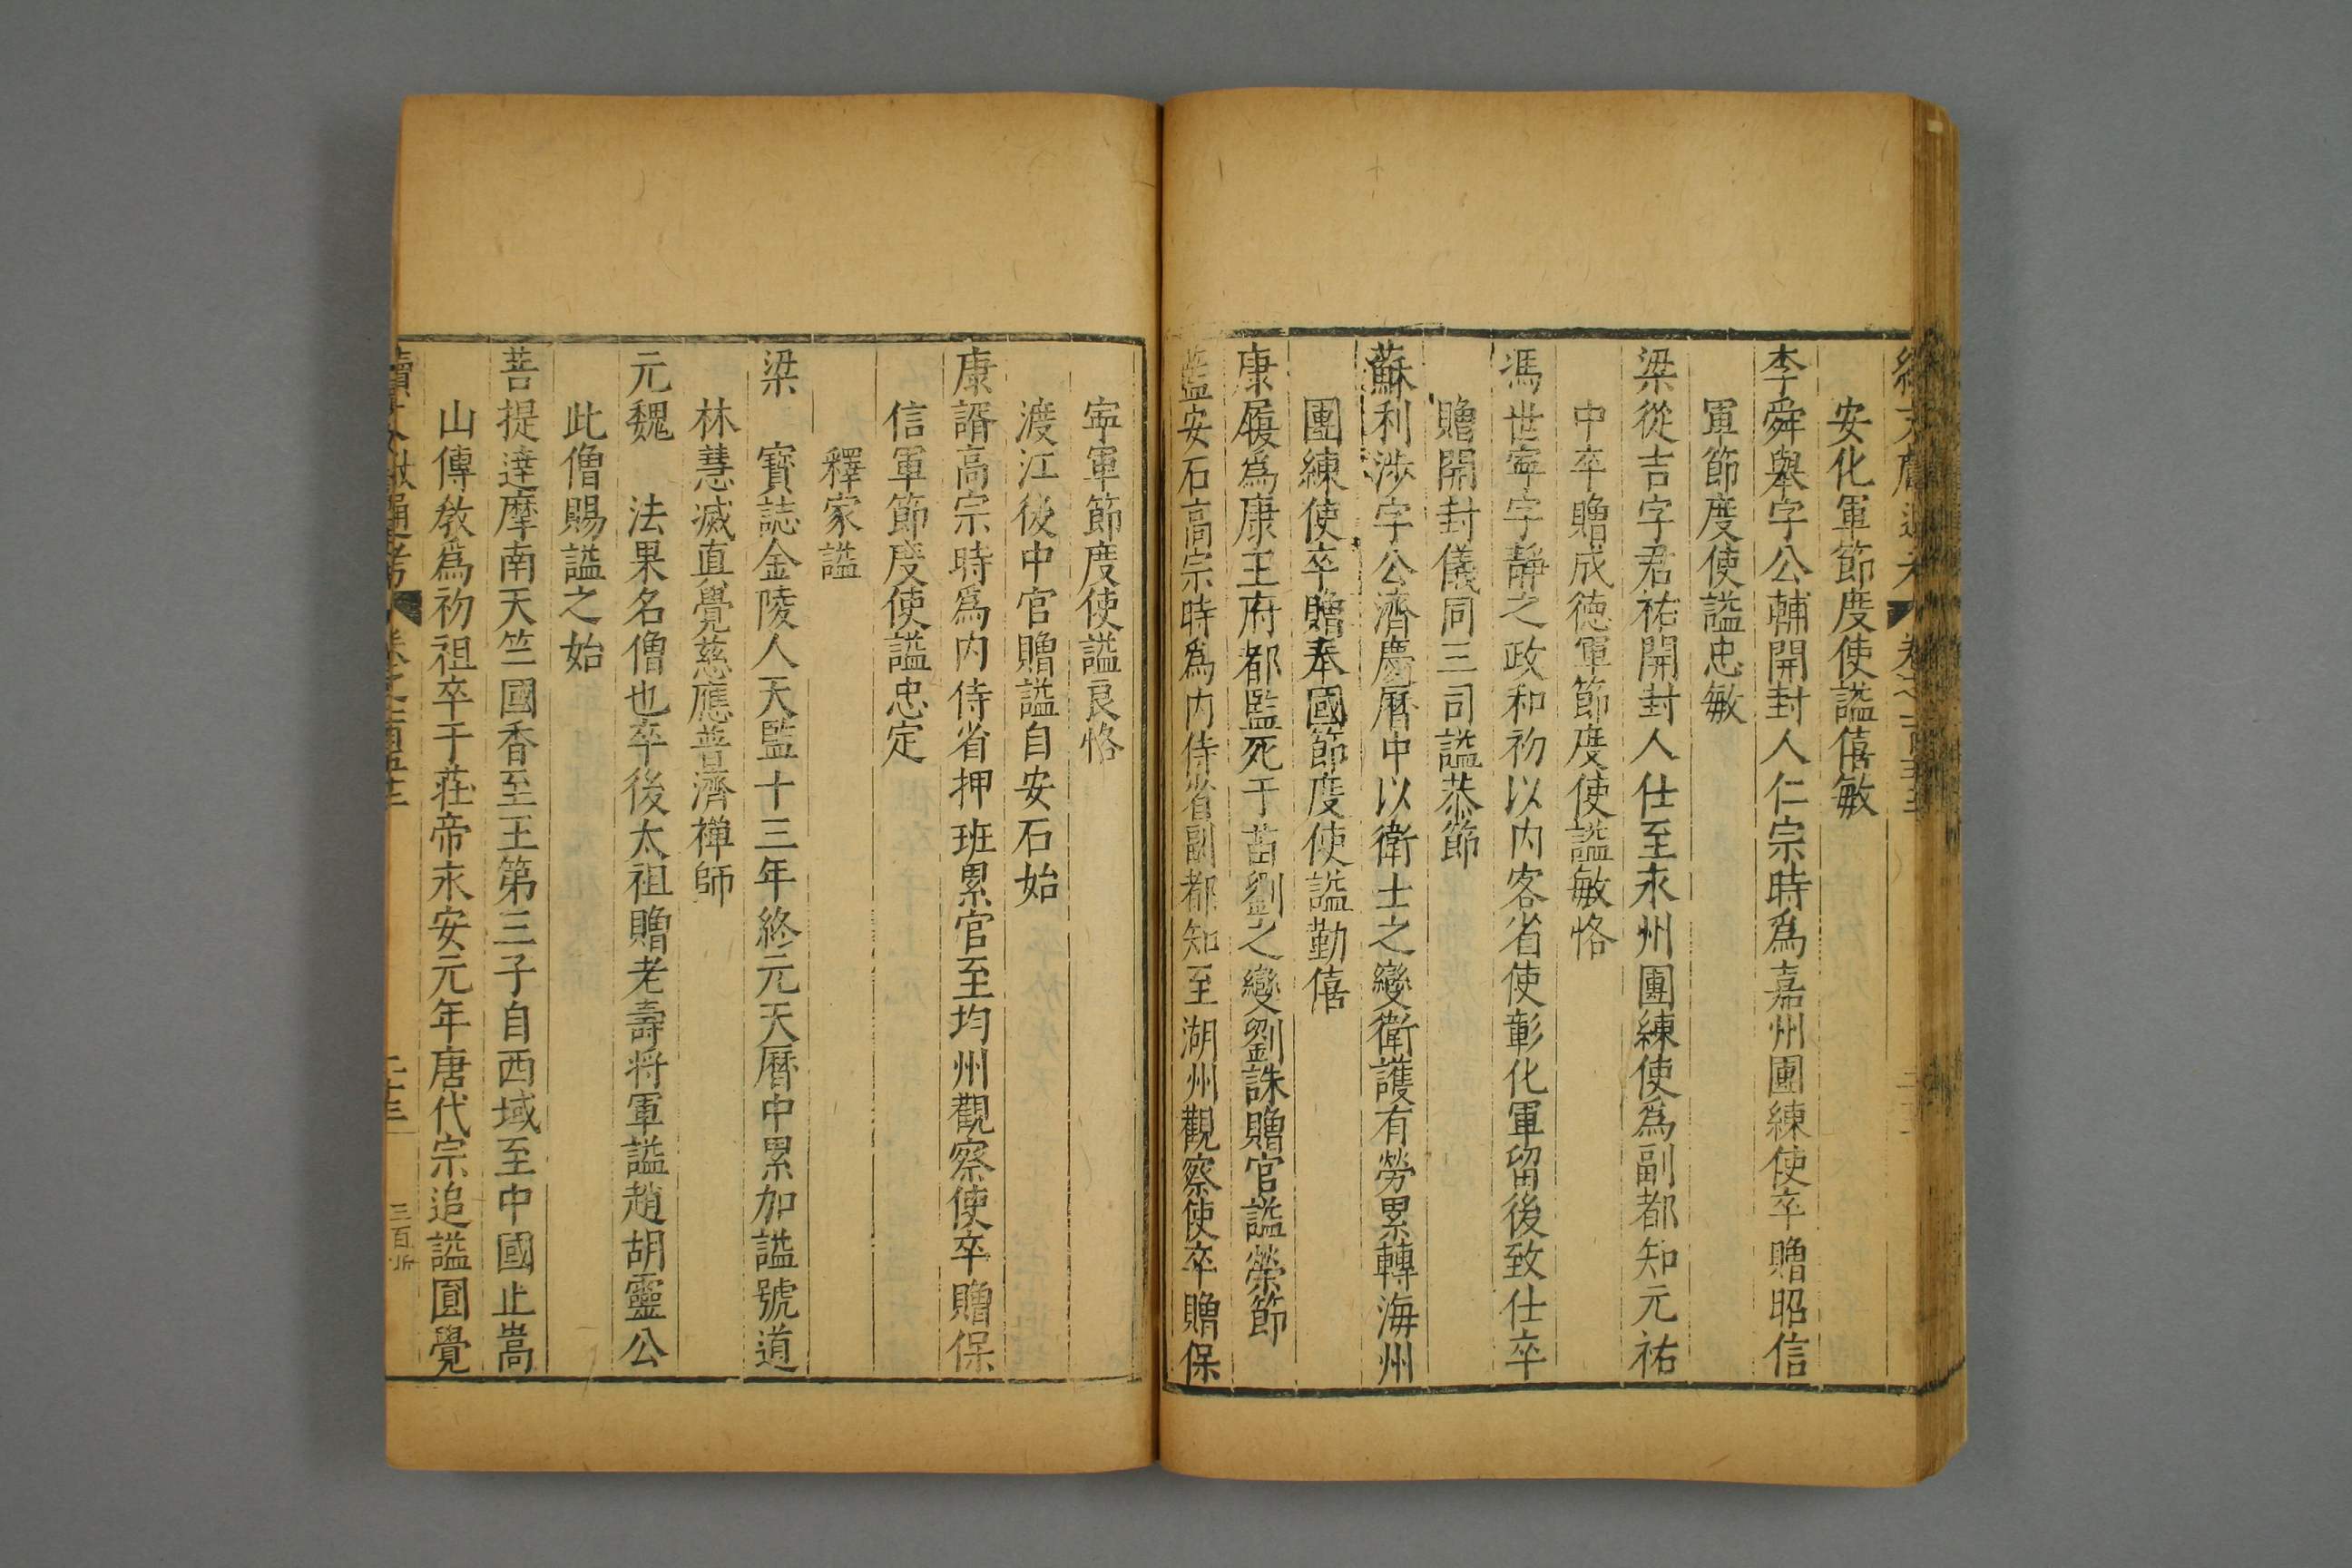 安化軍節度使謚僖敏
李舜舉字公輔開封人仁宗時爲嘉州團練使卒贈昭信
軍節度使謚忠敏
梁從吉字君祐開封人仕至永州團練使爲副都知元祐
中卒贈成德軍節度使謚敏恪
馮世寧字靜之政和初以内客省使彰化軍留後致仕卒
贈開封儀同三司謚恭節
蘇利涉字公濟慶曆中以衛士之變衛護有勞累轉海州
團練使卒贈奉國節度使謚勤僖
康履爲康王府都監死于苗劉之變劉誅贈官謚榮節
藍安石高宗時爲内侍省副都知至湖州觀察使卒贈保
寧軍節度使謚良恪
渡江後中官贈謚自安石始
康諝高宗時爲内侍省押班累官至均州觀察使卒贈保
信軍節度使謚忠定
釋家謚
梁 寶誌金陵人天監十三年終元天曆中累加謚號道
林慧滅直覺慈應普濟禪師
元魏 法果名僧也卒後太祖贈老壽将軍謚趙胡靈公
此僧賜謚之始
菩提達摩南天竺國香至王第三子自西域至中國止嵩
山傳教爲初祖卒于莊帝永安元年唐代宗追謚圓覺
續文獻通考